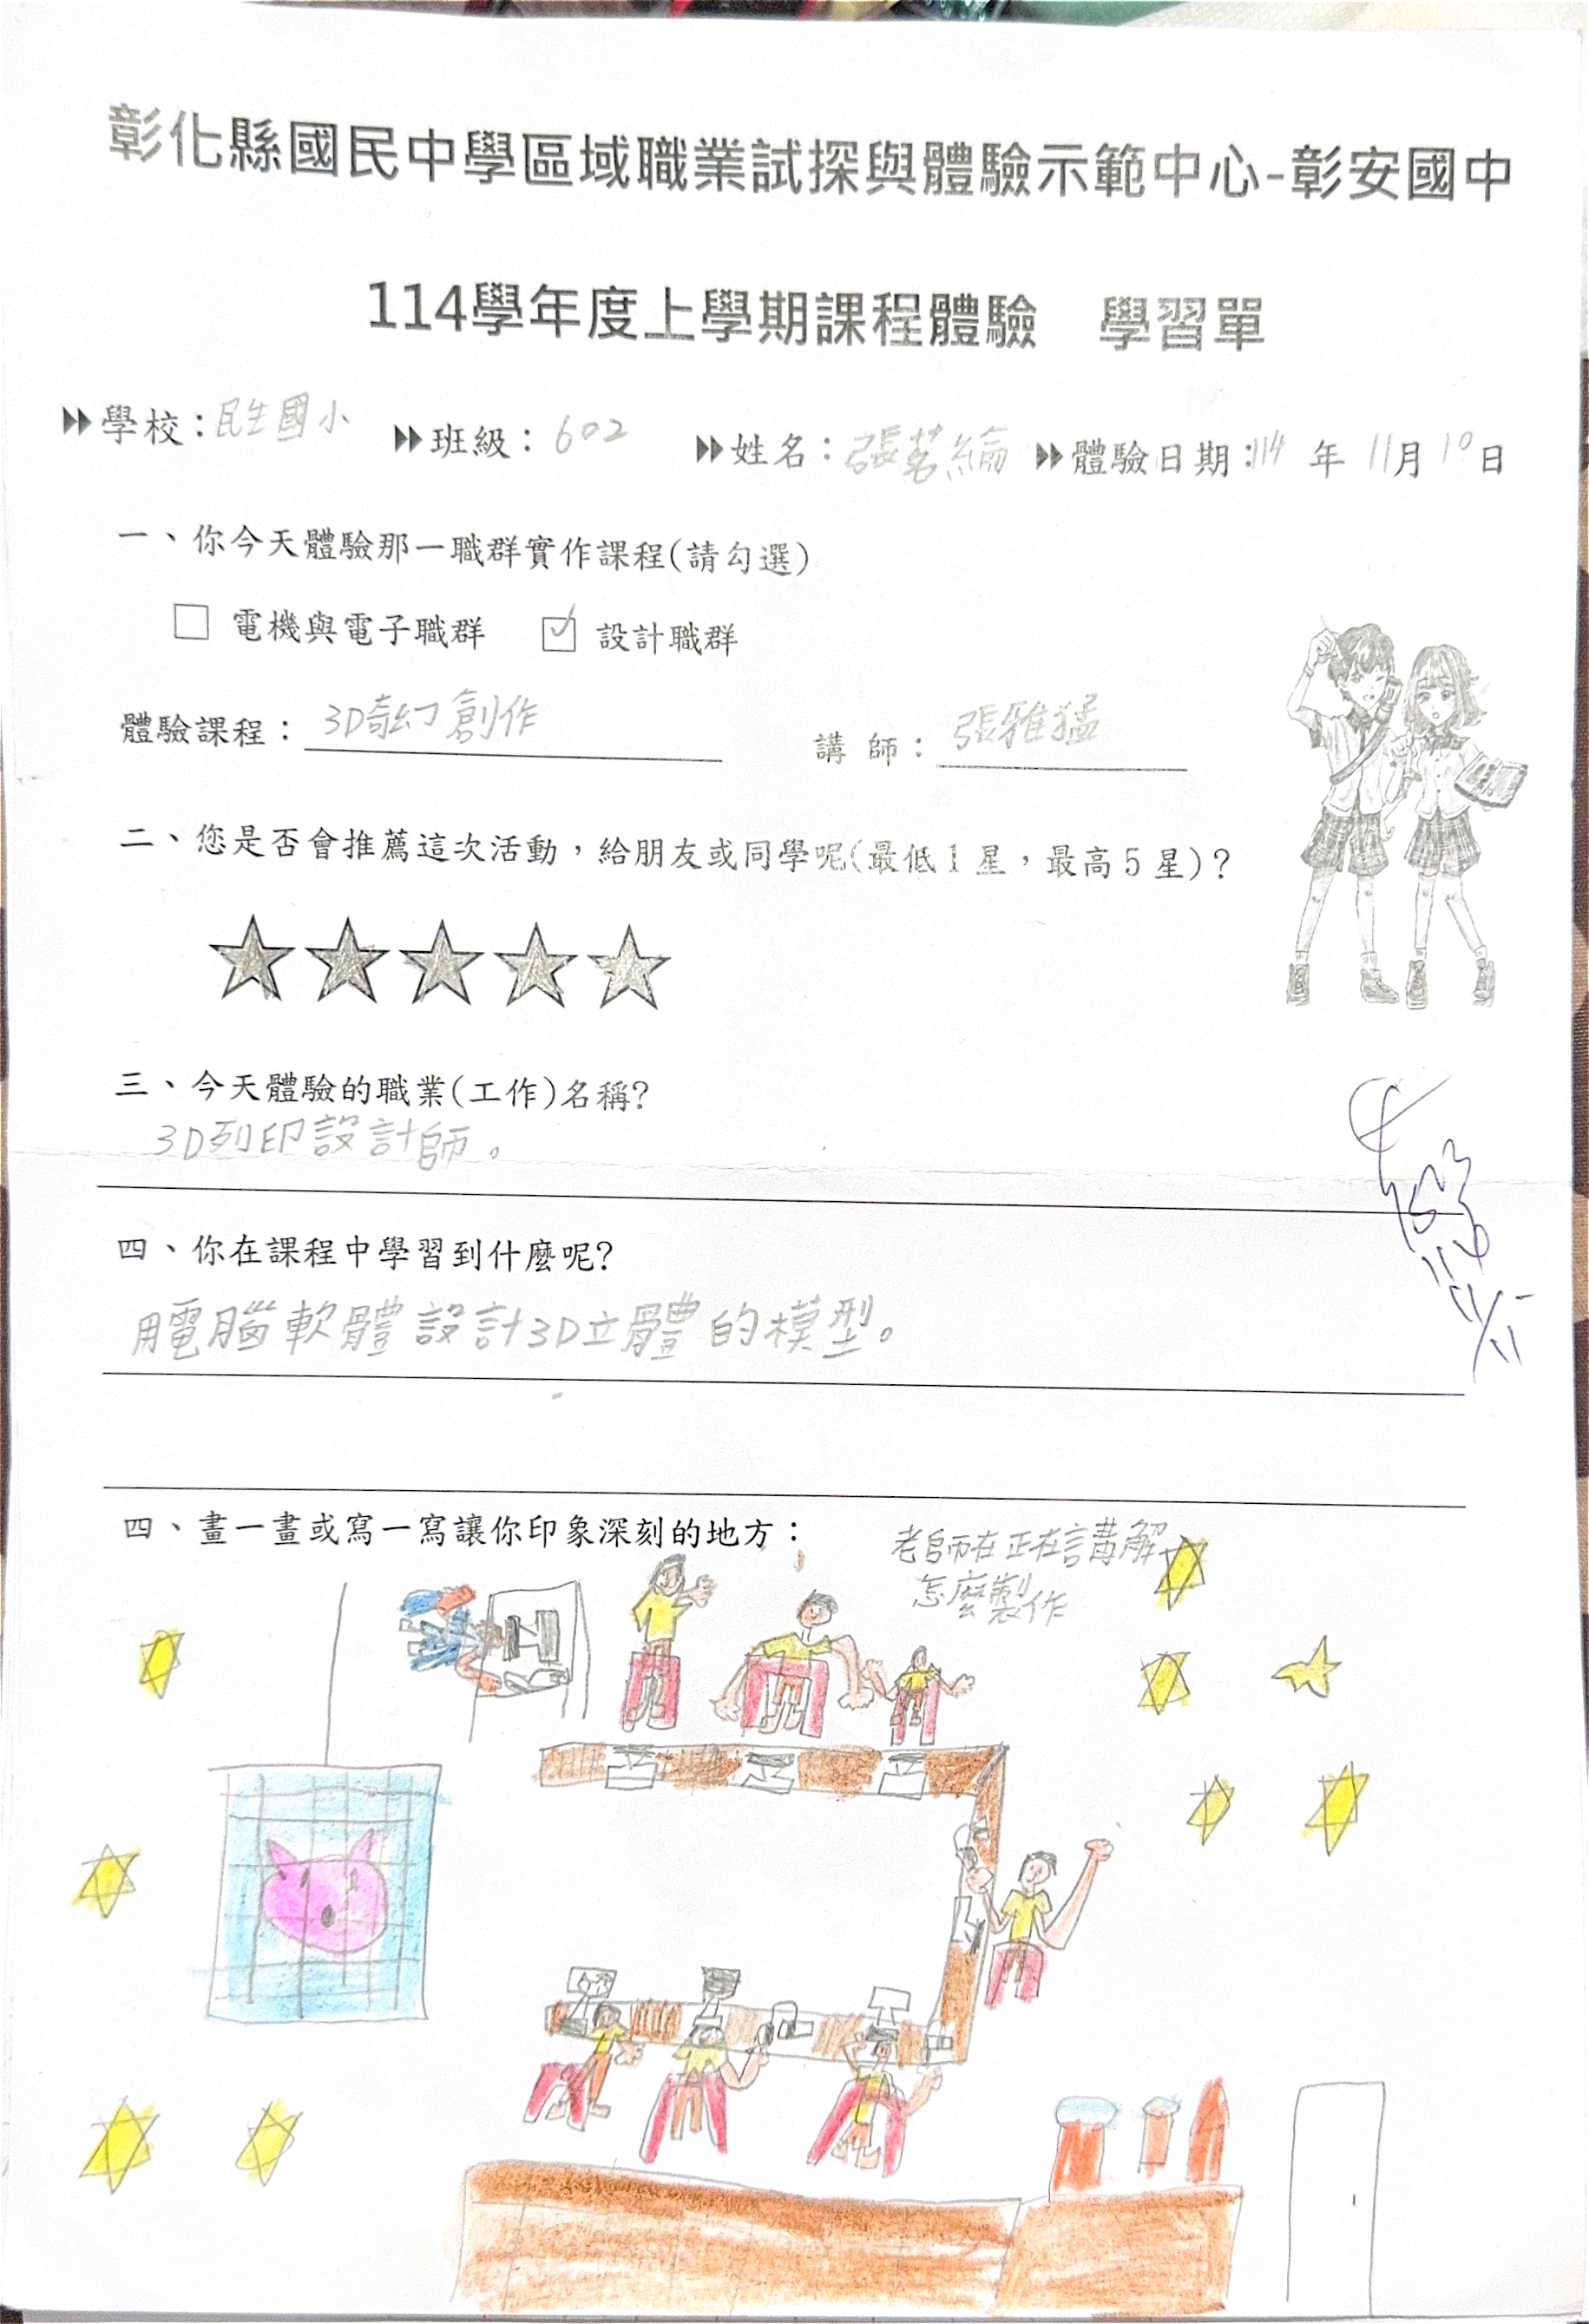 彰化縣國民中學區域職業試探與體驗示範中心-彰安國中
114學年度上學期課程體驗 學習單
學校:民生國小 班級:602 姓名:張茗綸 體驗日期:114年11月10日
一、你今天體驗那一職群實作課程(請勾選)
□ 電機與電子職群 ☑ 設計職群
體驗課程:3D奇幻創作 講師:張雅猛
二、您是否會推薦這次活動,給朋友或同學呢(最低1星,最高5星)?
★★★★★
三、今天體驗的職業(工作)名稱?
3D列印設計師。
四、你在課程中學習到什麼呢?
用電腦軟體設計3D立體的模型。
四、畫一畫或寫一寫讓你印象深刻的地方:
老師在正在講解
怎麼製作